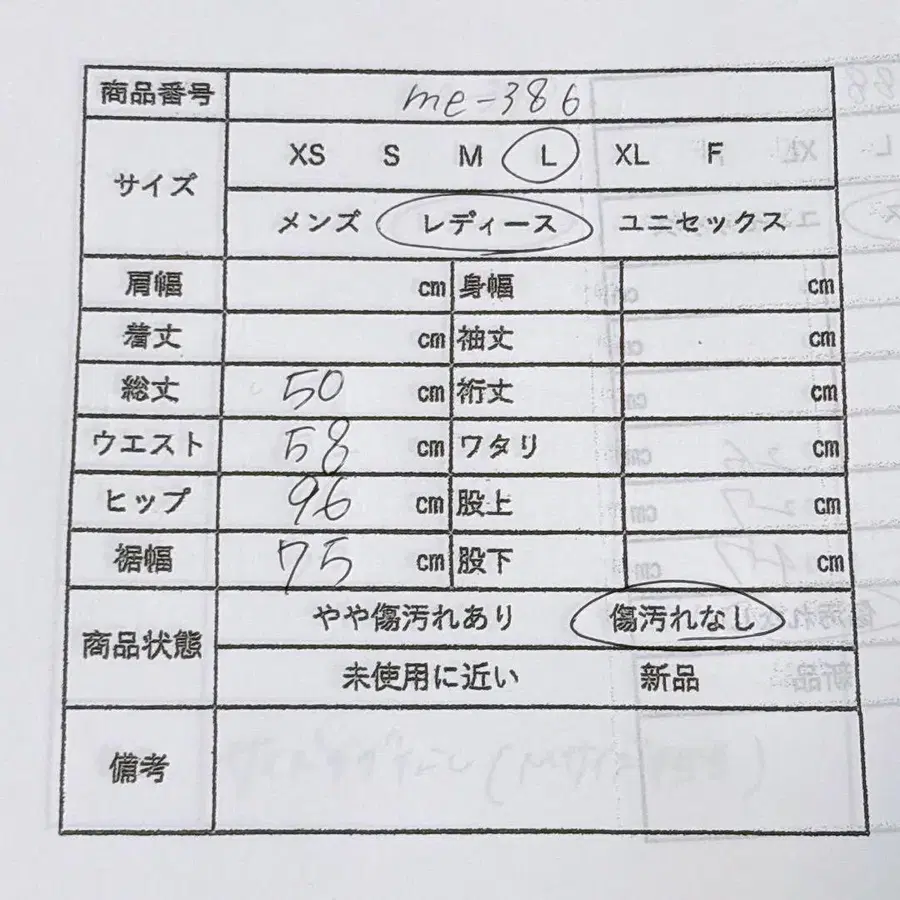 商品番号 me-386
サイズ XS S M L XL F
メンズ レディース ユニセックス
肩幅 cm 身幅 cm
着丈 cm 袖丈 cm
総丈 50 cm 裄丈 cm
ウエスト 58 cm ワタリ cm
ヒップ 96 cm 股上 cm
裾幅 75 cm 股下 cm
商品状態 やや傷汚れあり 傷汚れなし
未使用に近い 新品
備考